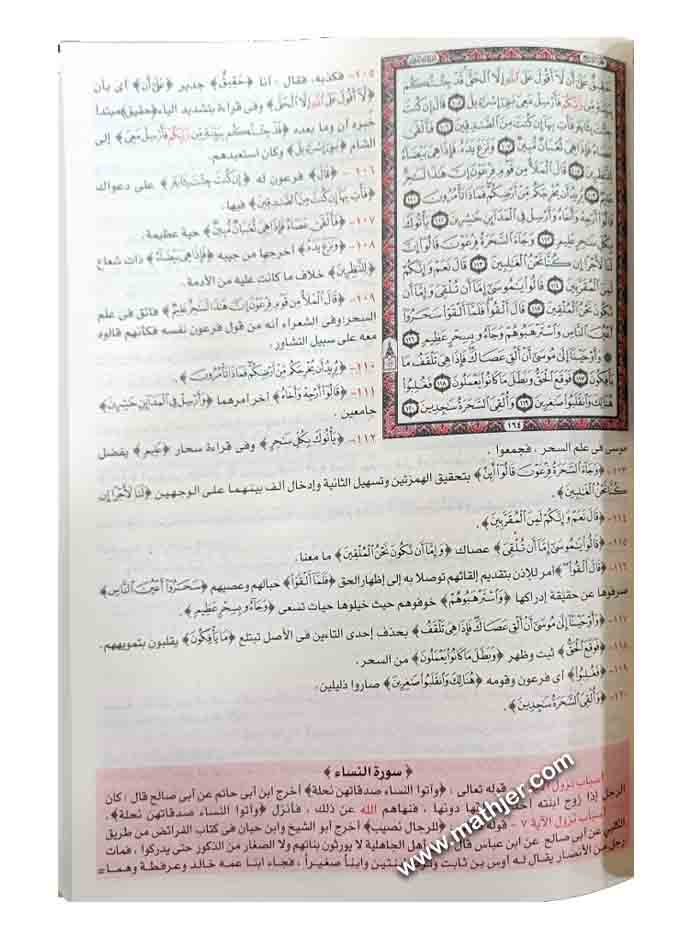 حَقِيقٌ عَلَىٰ أَن لَّا أَقُولَ عَلَى اللَّهِ إِلَّا الْحَقَّ قَدْ جِئْتُكُم
بِبَيِّنَةٍ مِّن رَّبِّكُمْ فَأَرْسِلْ مَعِيَ بَنِي إِسْرَائِيلَ ۝١٠٥ قَالَ إِن كُنتَ
جِئْتَ بِآيَةٍ فَأْتِ بِهَا إِن كُنتَ مِنَ الصَّادِقِينَ ۝١٠٦ فَأَلْقَىٰ
عَصَاهُ فَإِذَا هِيَ ثُعْبَانٌ مُّبِينٌ ۝١٠٧ وَنَزَعَ يَدَهُ فَإِذَا هِيَ بَيْضَاءُ
لِلنَّاظِرِينَ ۝١٠٨ قَالَ الْمَلَأُ مِن قَوْمِ فِرْعَوْنَ إِنَّ هَٰذَا لَسَاحِرٌ
عَلِيمٌ ۝١٠٩ يُرِيدُ أَن يُخْرِجَكُم مِّنْ أَرْضِكُمْ فَمَاذَا تَأْمُرُونَ ۝١١٠
قَالُوا أَرْجِهْ وَأَخَاهُ وَأَرْسِلْ فِي الْمَدَائِنِ حَاشِرِينَ ۝١١١ يَأْتُوكَ
بِكُلِّ سَاحِرٍ عَلِيمٍ ۝١١٢ وَجَاءَ السَّحَرَةُ فِرْعَوْنَ قَالُوا إِنَّ
لَنَا لَأَجْرًا إِن كُنَّا نَحْنُ الْغَالِبِينَ ۝١١٣ قَالَ نَعَمْ وَإِنَّكُمْ
لَمِنَ الْمُقَرَّبِينَ ۝١١٤ قَالُوا يَا مُوسَىٰ إِمَّا أَن تُلْقِيَ وَإِمَّا أَن
نَّكُونَ نَحْنُ الْمُلْقِينَ ۝١١٥ قَالَ أَلْقُوا فَلَمَّا أَلْقَوْا سَحَرُوا
أَعْيُنَ النَّاسِ وَاسْتَرْهَبُوهُمْ وَجَاءُو بِسِحْرٍ عَظِيمٍ ۝١١٦
۞ وَأَوْحَيْنَا إِلَىٰ مُوسَىٰ أَنْ أَلْقِ عَصَاكَ فَإِذَا هِيَ تَلْقَفُ مَا
يَأْفِكُونَ ۝١١٧ فَوَقَعَ الْحَقُّ وَبَطَلَ مَا كَانُوا يَعْمَلُونَ ۝١١٨ فَغُلِبُوا
هُنَالِكَ وَانقَلَبُوا صَاغِرِينَ ۝١١٩ وَأُلْقِيَ السَّحَرَةُ سَاجِدِينَ ۝١٢٠
١٦٤
١٠٥- فكذبه، فقال، أنا ﴿حَقِيقٌ﴾ جدير ﴿عَلَىٰ أَن﴾ أى بأن
﴿لَّا أَقُولَ عَلَى اللَّهِ إِلَّا الْحَقَّ﴾ وفى قراءة بتشديد الياء ﴿حقيق﴾ مبتدأ
خبره أن وما بعده ﴿قَدْ جِئْتُكُم بِبَيِّنَةٍ مِّن رَّبِّكُمْ فَأَرْسِلْ مَعِيَ﴾ إلى
الشام ﴿بَنِي إِسْرَائِيلَ﴾ وكان استعبدهم.
١٠٦- ﴿قَالَ﴾ فرعون له ﴿إِن كُنتَ جِئْتَ بِآيَةٍ﴾ على دعواك
﴿فَأْتِ بِهَا إِن كُنتَ مِنَ الصَّادِقِينَ﴾ فيها.
١٠٧- ﴿فَأَلْقَىٰ عَصَاهُ فَإِذَا هِيَ ثُعْبَانٌ مُّبِينٌ﴾ حية عظيمة.
١٠٨- ﴿وَنَزَعَ يَدَهُ﴾ أخرجها من جيبه ﴿فَإِذَا هِيَ بَيْضَاءُ﴾ ذات شعاع
﴿لِلنَّاظِرِينَ﴾ خلاف ما كانت عليه من الأدمة.
١٠٩- ﴿قَالَ الْمَلَأُ مِن قَوْمِ فِرْعَوْنَ إِنَّ هَٰذَا لَسَاحِرٌ عَلِيمٌ﴾ فائق فى علم
السحر؛ وفى الشعراء أنه من قول فرعون نفسه فكأنهم قالوه
معه على سبيل التشاور.
١١٠- ﴿يُرِيدُ أَن يُخْرِجَكُم مِّنْ أَرْضِكُمْ فَمَاذَا تَأْمُرُونَ﴾.
١١١- ﴿قَالُوا أَرْجِهْ وَأَخَاهُ﴾ أخر أمرهما ﴿وَأَرْسِلْ فِي الْمَدَائِنِ حَاشِرِينَ﴾
جامعين.
١١٢- ﴿يَأْتُوكَ بِكُلِّ سَاحِرٍ﴾ وفى قراءة سحار ﴿عَلِيمٍ﴾ يفضل
موسى فى علم السحر، فجمعوا.
١١٣- ﴿وَجَاءَ السَّحَرَةُ فِرْعَوْنَ قَالُوا أَئِنَّ﴾ بتحقيق الهمزتين وتسهيل الثانية وإدخال ألف بينهما على الوجهين ﴿لَنَا لَأَجْرًا إِن
كُنَّا نَحْنُ الْغَالِبِينَ﴾.
١١٤- ﴿قَالَ نَعَمْ وَإِنَّكُمْ لَمِنَ الْمُقَرَّبِينَ﴾.
١١٥- ﴿قَالُوا يَا مُوسَىٰ إِمَّا أَن تُلْقِيَ﴾ عصاك ﴿وَإِمَّا أَن نَّكُونَ نَحْنُ الْمُلْقِينَ﴾ ما معنا.
١١٦- ﴿قَالَ أَلْقُوا﴾ أمر للإذن بتقديم إلقائهم توصلا به إلى إظهار الحق ﴿فَلَمَّا أَلْقَوْا﴾ حبالهم وعصيهم ﴿سَحَرُوا أَعْيُنَ النَّاسِ﴾
صرفوها عن حقيقة إدراكها ﴿وَاسْتَرْهَبُوهُمْ﴾ خوفوهم حيث خيلوها حيات تسعى ﴿وَجَاءُو بِسِحْرٍ عَظِيمٍ﴾.
١١٧- ﴿وَأَوْحَيْنَا إِلَىٰ مُوسَىٰ أَنْ أَلْقِ عَصَاكَ فَإِذَا هِيَ تَلْقَفُ﴾ بحذف إحدى التاءين فى الأصل تبتلع ﴿مَا يَأْفِكُونَ﴾ يقلبون بتمويههم.
١١٨- ﴿فَوَقَعَ الْحَقُّ﴾ ثبت وظهر ﴿وَبَطَلَ مَا كَانُوا يَعْمَلُونَ﴾ من السحر.
١١٩- ﴿فَغُلِبُوا﴾ أى فرعون وقومه ﴿هُنَالِكَ وَانقَلَبُوا صَاغِرِينَ﴾ صاروا ذليلين.
١٢٠- ﴿وَأُلْقِيَ السَّحَرَةُ سَاجِدِينَ﴾.
﴿ سورة النساء ﴾
أسباب نزول قوله تعالى: ﴿وآتوا النساء صدقاتهن نحلة﴾ أخرج ابن أبى حاتم عن أبى صالح قال: كان
الرجل إذا زوج ابنته أخذ دونها، فنهاهم الله عن ذلك، فأنزل ﴿وآتوا النساء صدقاتهن نحلة﴾.
أسباب نزول الآية ٧- قوله ﴿للرجال نصيب﴾ أخرج أبو الشيخ وابن حبان فى كتاب الفرائض من طريق
الكلبى عن أبى صالح عن ابن عباس قال: أهل الجاهلية لا يورثون بناتهم ولا الصغار من الذكور حتى يدركوا، فمات
رجل من الأنصار يقال له أوس بن ثابت وترك ابنتين وابناً صغيراً، فجاء ابنا عمه خالد وعرفطة وهما=
www.mathjer.com